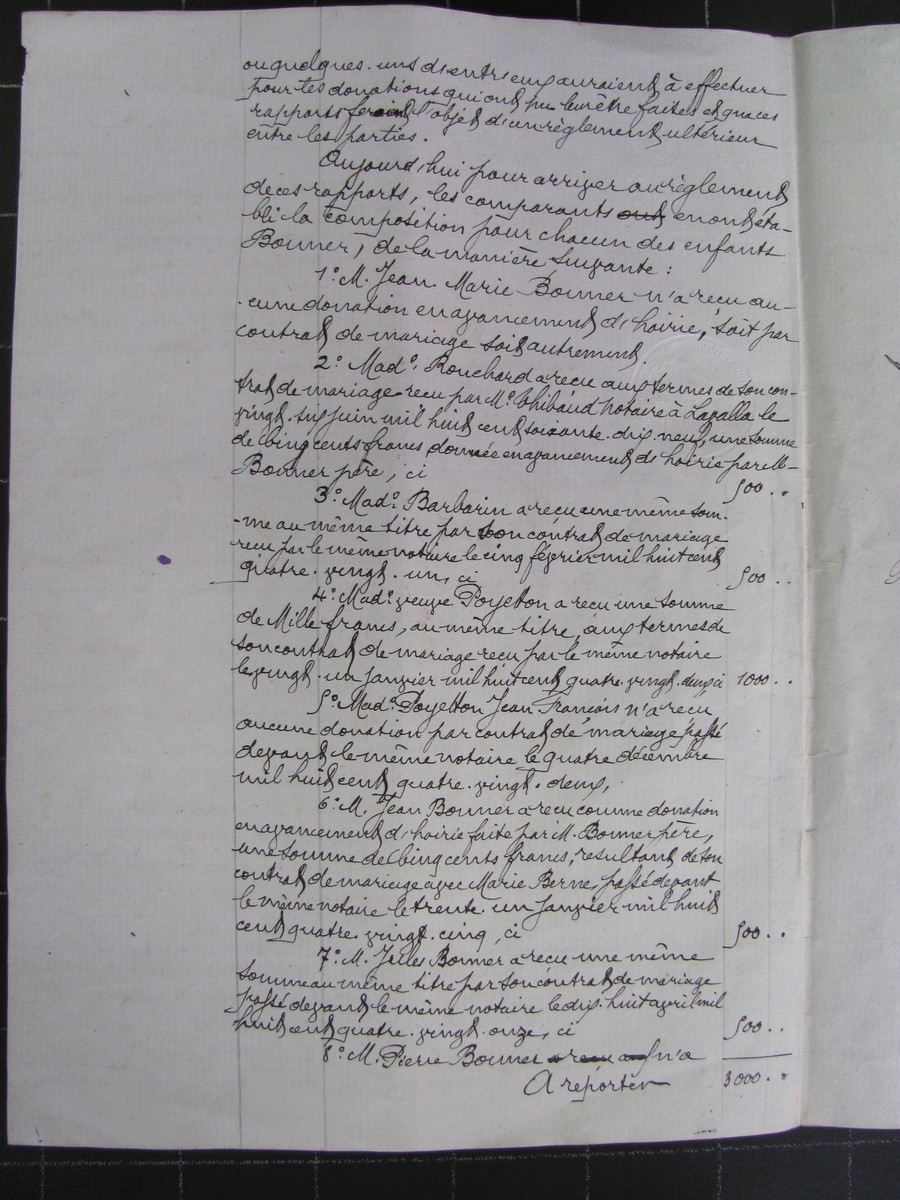 ou quelques-uns d'entre eux auraient à effectuer
pour les donations qui ont pu leur être faites et que ces
rapports feraient l'objet d'un règlement ultérieur
entre les parties.
Aujourd'hui pour arriver au règlement
de ces rapports, les comparants ont en ont éta-
bli la composition pour chacun des enfants
Bonner, de la manière suivante :
1° M. Jean-Marie Bonner n'a reçu au-
cune donation en avancement d'hoirie, soit par
contrat de mariage soit autrement.
2° Mad.e Bouchard a reçu aux termes de son con-
trat de mariage reçu par M.e Thibaud notaire à Lavalla le
vingt-six juin mil huit cent soixante-dix-neuf, une somme
de Cinq cents francs donnée en avancement d'hoirie par M-
Bonner père, ci 500 . .
3° Mad.e Barbarin a reçu une même som-
-me au même titre par son contrat de mariage
reçu par le même notaire le cinq février mil huit cent
quatre-vingt-un, ci 500 . .
4° Mad.e veuve Poyetton a reçu une somme
de Mille francs, au même titre, aux termes de
son contrat de mariage reçu par le même notaire
le vingt-un janvier mil huit cent quatre-vingt-deux ci 1000 . .
5° Mad.e Poyetton Jean François n'a reçu
aucune donation par contrat de mariage passé
devant le même notaire le quatre décembre
mil huit cent quatre-vingt-deux,
6° M. Jean Bonner a reçu comme donation
en avancement d'hoirie faite par M. Bonner père,
une somme de Cinq cents francs, résultant de son
contrat de mariage avec Marie Berne, passé devant
le même notaire le trente-un janvier mil huit
cent quatre-vingt-cinq, ci 500 . .
7° M. Jules Bonner a reçu une même
somme au même titre par son contrat de mariage
passé devant le même notaire le dix-huit avril mil
huit cent quatre-vingt-onze, ci 500 . .
8° M. Pierre Bonner a reçu n'a
A reporter 3000 . .